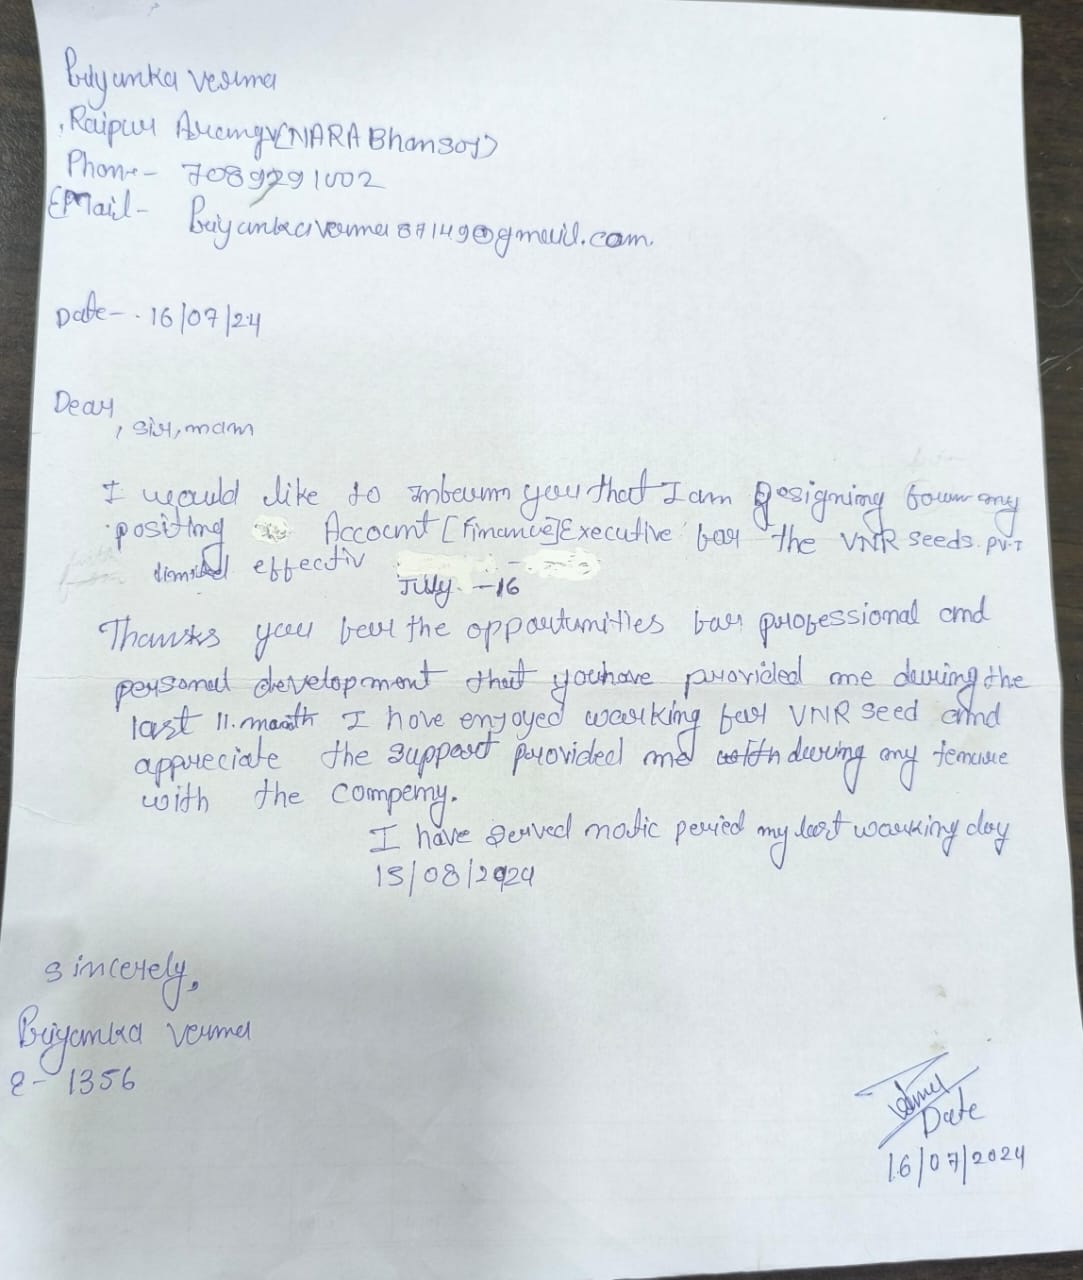 Priyanka Verma
, Raipur Arang [NARA Bhansoj]
Phone - 7089291002
EMail - Priyankaverma87149@gmail.com.
Date - . 16/07/24
Dear
, sir, mam
I would like to inform you that I am resigning from my
positing Account [Finance] Executive for the VNR seeds. Pv.T
limited effectiv
July. - 16
Thanks you for the opportunities for professional and
personal development that youhave provided me during the
last 11. month I have enjoyed working for VNR seed and
appreciate the support provided me with during my tenure
with the company.
I have served notic period my last working day
15/08/2024
Sincerely,
Priyanka Verma
E - 1356
Date
16/07/2024